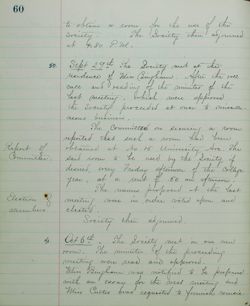 60
to obtain a room for the use of the
Society. The Society then adjourned
at 4.30 P.M.
Sept 29th The Society met at the
residence of Miss Bingham. After the
and reading of the minutes of the
last meeting, which were approved
the Society proceeded at once to
business.
The Committee on securing a room
reported that such a room had been
obtained at No 15 University Ave. The
said room to be used by the Society if
desired, every Friday afternoon of the College
year, at a rent of an afternoon.
Report of
Committee.
The names proposed at the last
meeting were in order voted upon and
elected.
Election of
members
Society then adjourned.
Oct 6th. The Society met in our new
room. The minutes of the preceeding
meeting were read and approved.
Miss Bingham was notified to be prepared
with an essay for the next meeting and
Miss Carter was requested to furnish